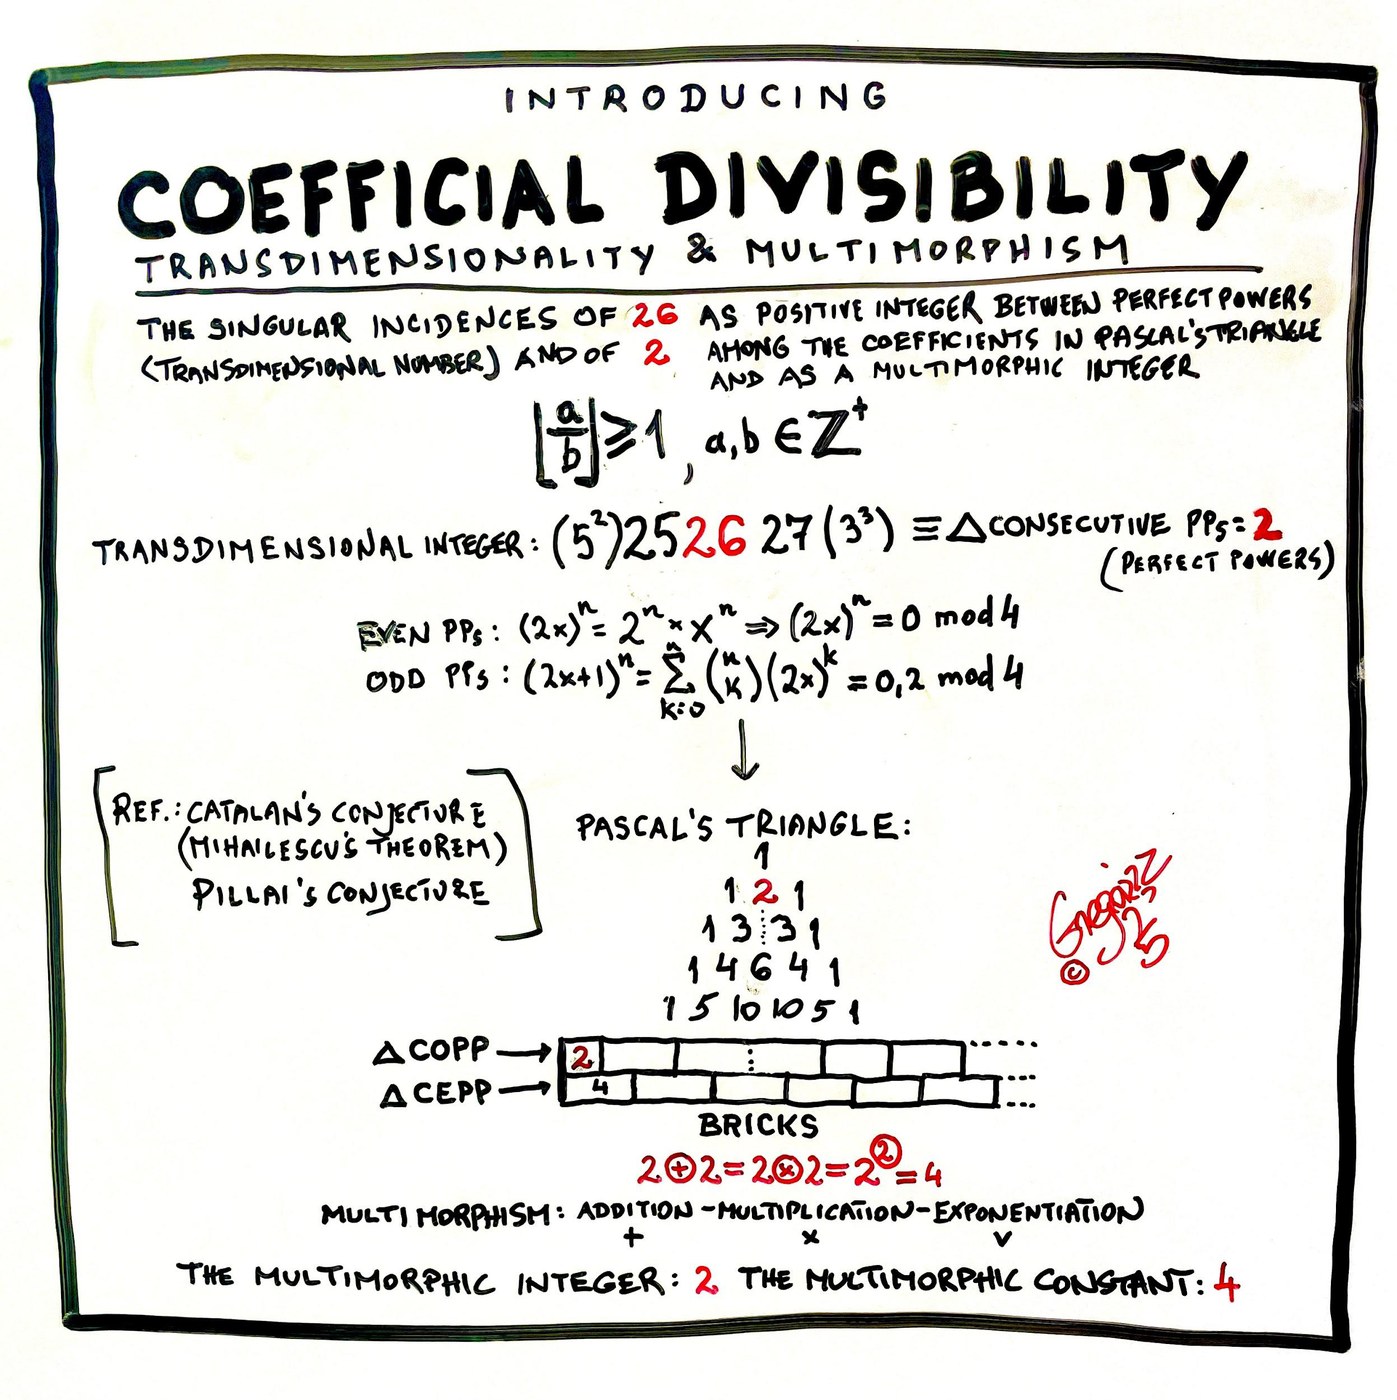 INTRODUCING
COEFFICIAL DIVISIBILITY
TRANSDIMENSIONALITY & MULTIMORPHISM
THE SINGULAR INCIDENCES OF 26 AS POSITIVE INTEGER BETWEEN PERFECT POWERS
(TRANSDIMENSIONAL NUMBER) AND OF 2 AMONG THE COEFFICIENTS IN PASCAL'S TRIANGLE
AND AS A MULTIMORPHIC INTEGER
⌊a/b⌋ ⩾ 1, a,b ∈ ℤ⁺
TRANSDIMENSIONAL INTEGER: (5²) 25 26 27 (3³) ≡ △CONSECUTIVE PPs = 2
(PERFECT POWERS)
EVEN PPs: (2x)ⁿ = 2ⁿ × xⁿ ⇒ (2x)ⁿ = 0 mod 4
ODD PPs: (2x+1)ⁿ = Σ (n k) (2x)ᵏ = 0,2 mod 4
n
k=0
REF.: CATALAN'S CONJECTURE
(MIHAILESCU'S THEOREM)
PILLAI'S CONJECTURE
PASCAL'S TRIANGLE:
1
1 2 1
1 3 3 1
1 4 6 4 1
1 5 10 10 5 1
© 25
△COPP → 2
△CEPP → 4
BRICKS
2⊕2=2⊗2=2^②=4
MULTIMORPHISM: ADDITION-MULTIPLICATION-EXPONENTIATION
+ × v
THE MULTIMORPHIC INTEGER: 2 THE MULTIMORPHIC CONSTANT: 4